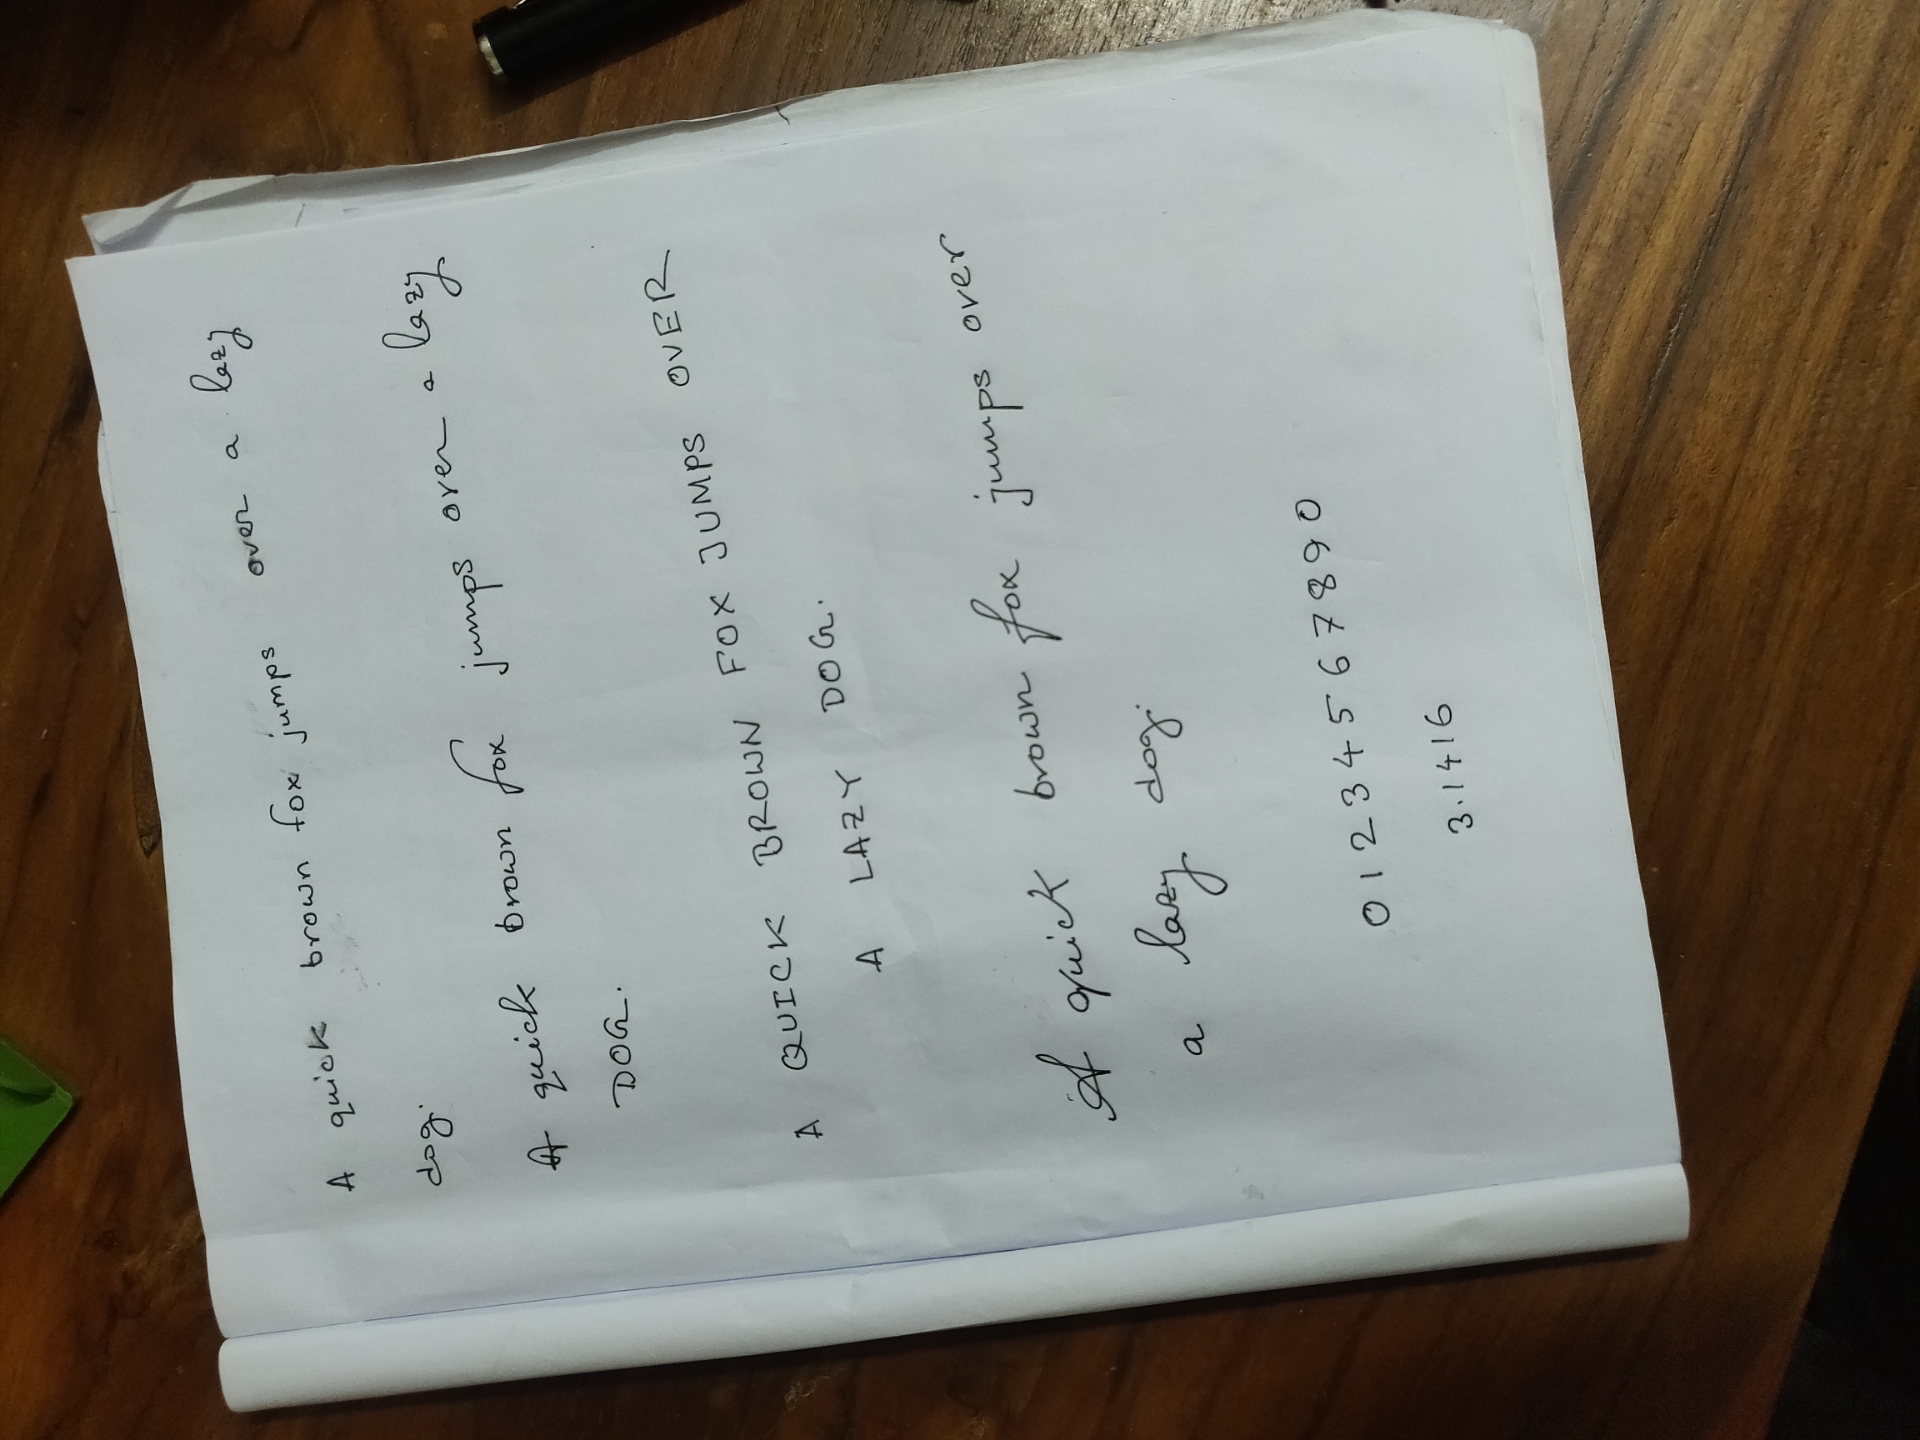 A quick brown fox jumps over a lazy
dog.
A quick brown fox jumps over a lazy
DOG.
A QUICK BROWN FOX JUMPS OVER
A LAZY DOG.
A quick brown fox jumps over
a lazy dog.
0 1 2 3 4 5 6 7 8 9 0
3.1416